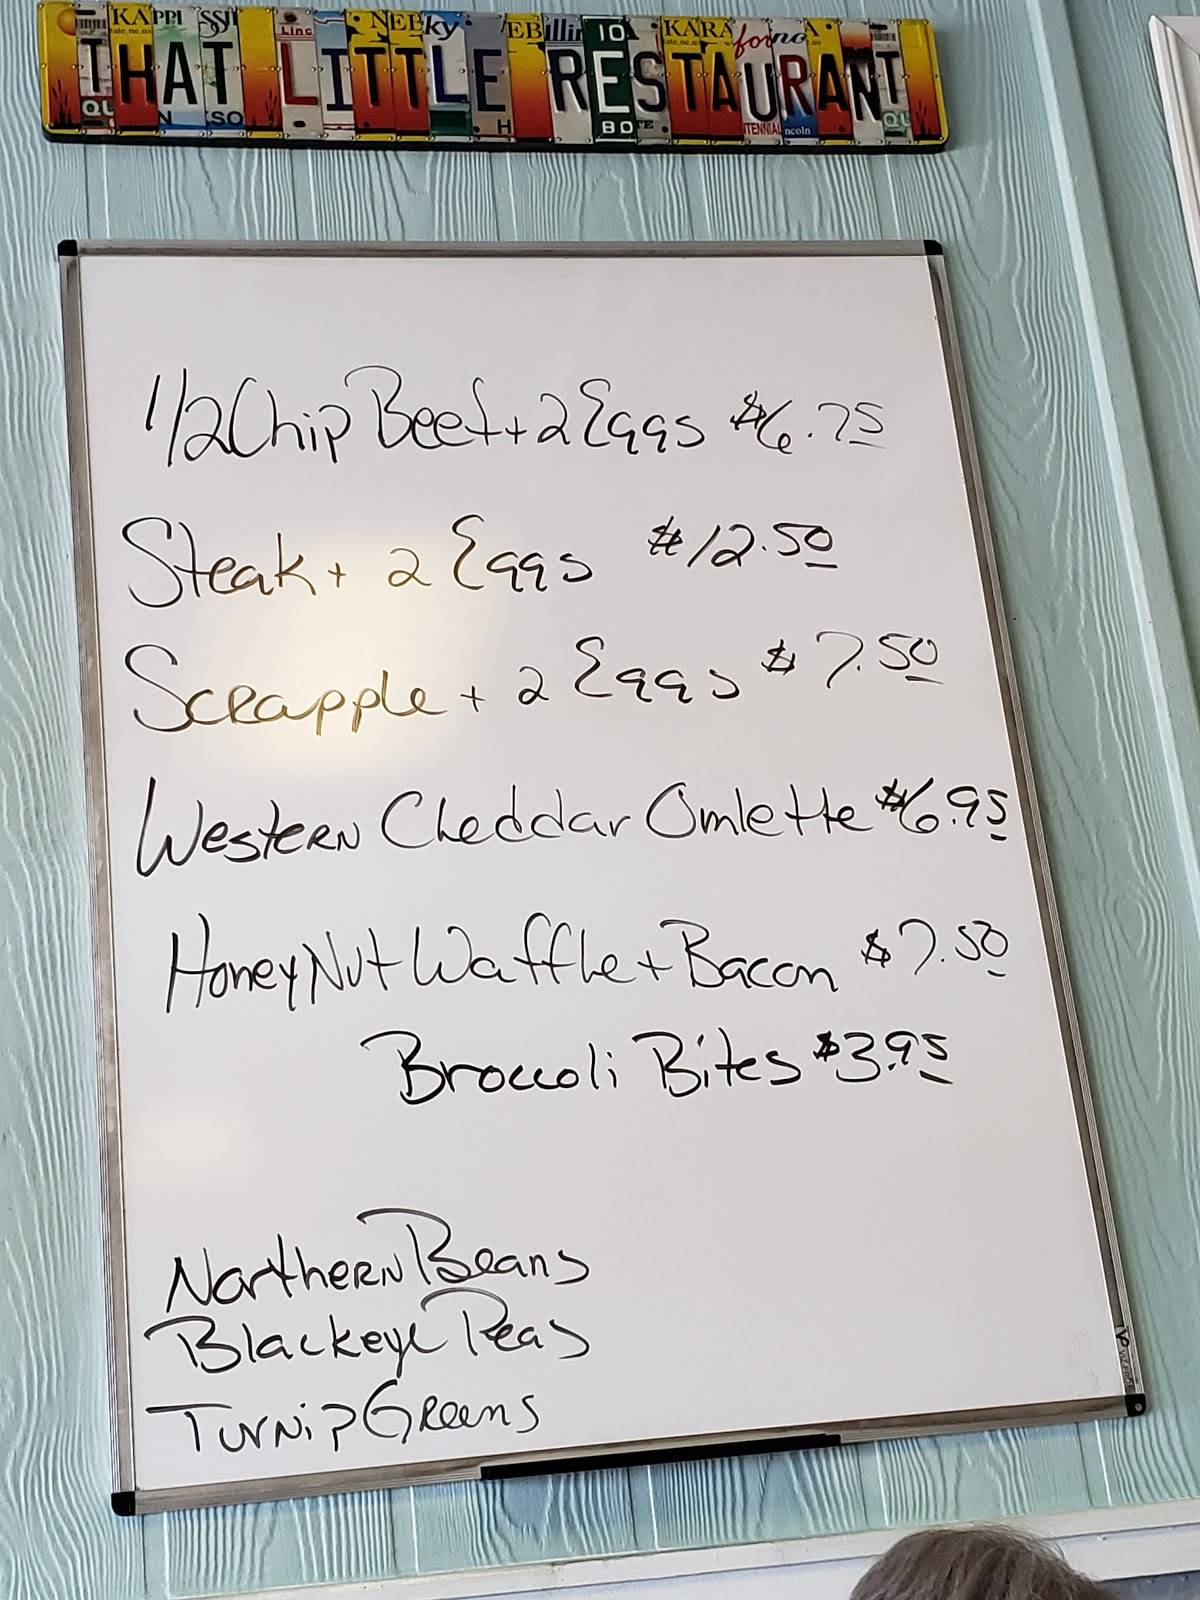 THAT LITTLE RESTAURANT
1/2 Chip Beef + 2 Eggs $6.75
Steak + 2 Eggs $12.50
Scrapple + 2 Eggs $7.50
Western Cheddar Omlette $6.95
Honey Nut Waffle + Bacon $7.50
Broccoli Bites $3.95
Northern Beans
Blackeye Peas
Turnip Greens